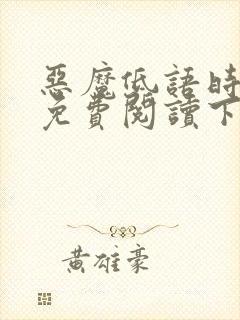 惡魔低語時
免費閱讀下
黃雄豪